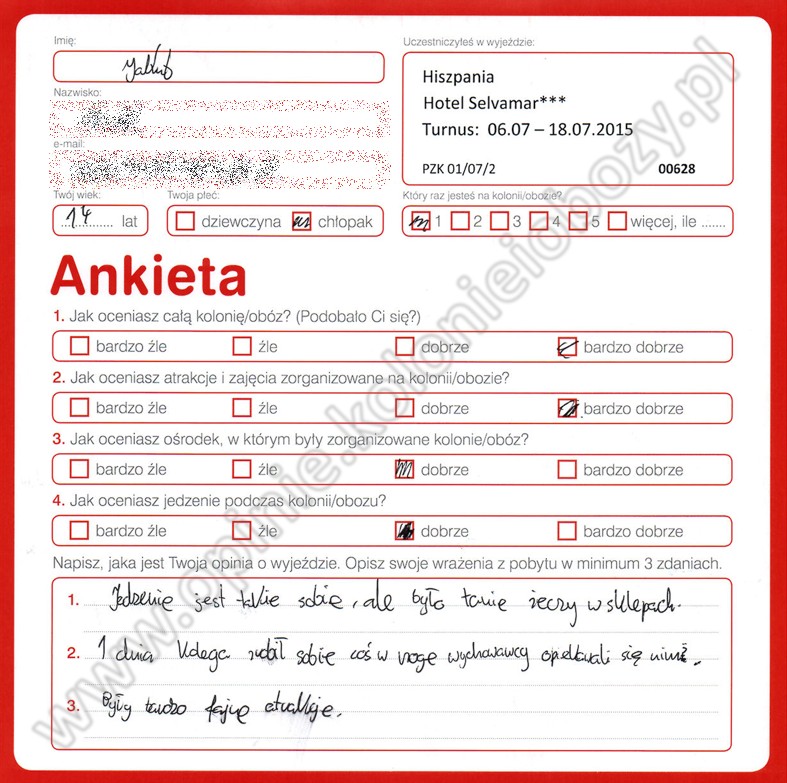 Imię:
Jakub
Uczestniczyłeś w wyjeździe:
Hiszpania
Hotel Selvamar***
Turnus: 06.07 – 18.07.2015
PZK 01/07/2
00628
Nazwisko:
e-mail:
Twój wiek:
14 lat
Twoja płeć:
dziewczyna chłopak
Który raz jesteś na kolonii/obozie?
1 2 3 4 5 więcej, ile .......
Ankieta
1. Jak oceniasz całą kolonię/obóz? (Podobało Ci się?)
bardzo źle źle dobrze bardzo dobrze
2. Jak oceniasz atrakcje i zajęcia zorganizowane na kolonii/obozie?
bardzo źle źle dobrze bardzo dobrze
3. Jak oceniasz ośrodek, w którym były zorganizowane kolonie/obóz?
bardzo źle źle dobrze bardzo dobrze
4. Jak oceniasz jedzenie podczas kolonii/obozu?
bardzo źle źle dobrze bardzo dobrze
Napisz, jaka jest Twoja opinia o wyjeździe. Opisz swoje wrażenia z pobytu w minimum 3 zdaniach.
1. Jedzenie jest takie sobie, ale było tanie rzeczy w sklepach.
2. 1 dnia kolega zrobił sobie coś w nogę wychowawcy opiekowali się nimi.
3. Były bardzo fajne atrakcje.
www.opinie.kolonieiobozy.pl